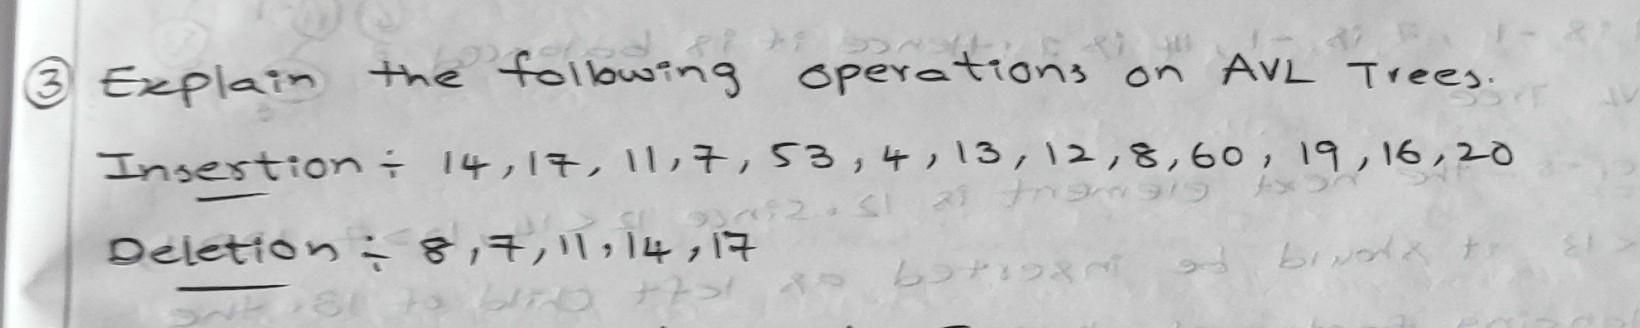 ③ Explain the following operations on AVL Trees.
Insertion ÷ 14, 17, 11, 7, 53, 4, 13, 12, 8, 60, 19, 16, 20
Deletion ÷ 8, 7, 11, 14, 17